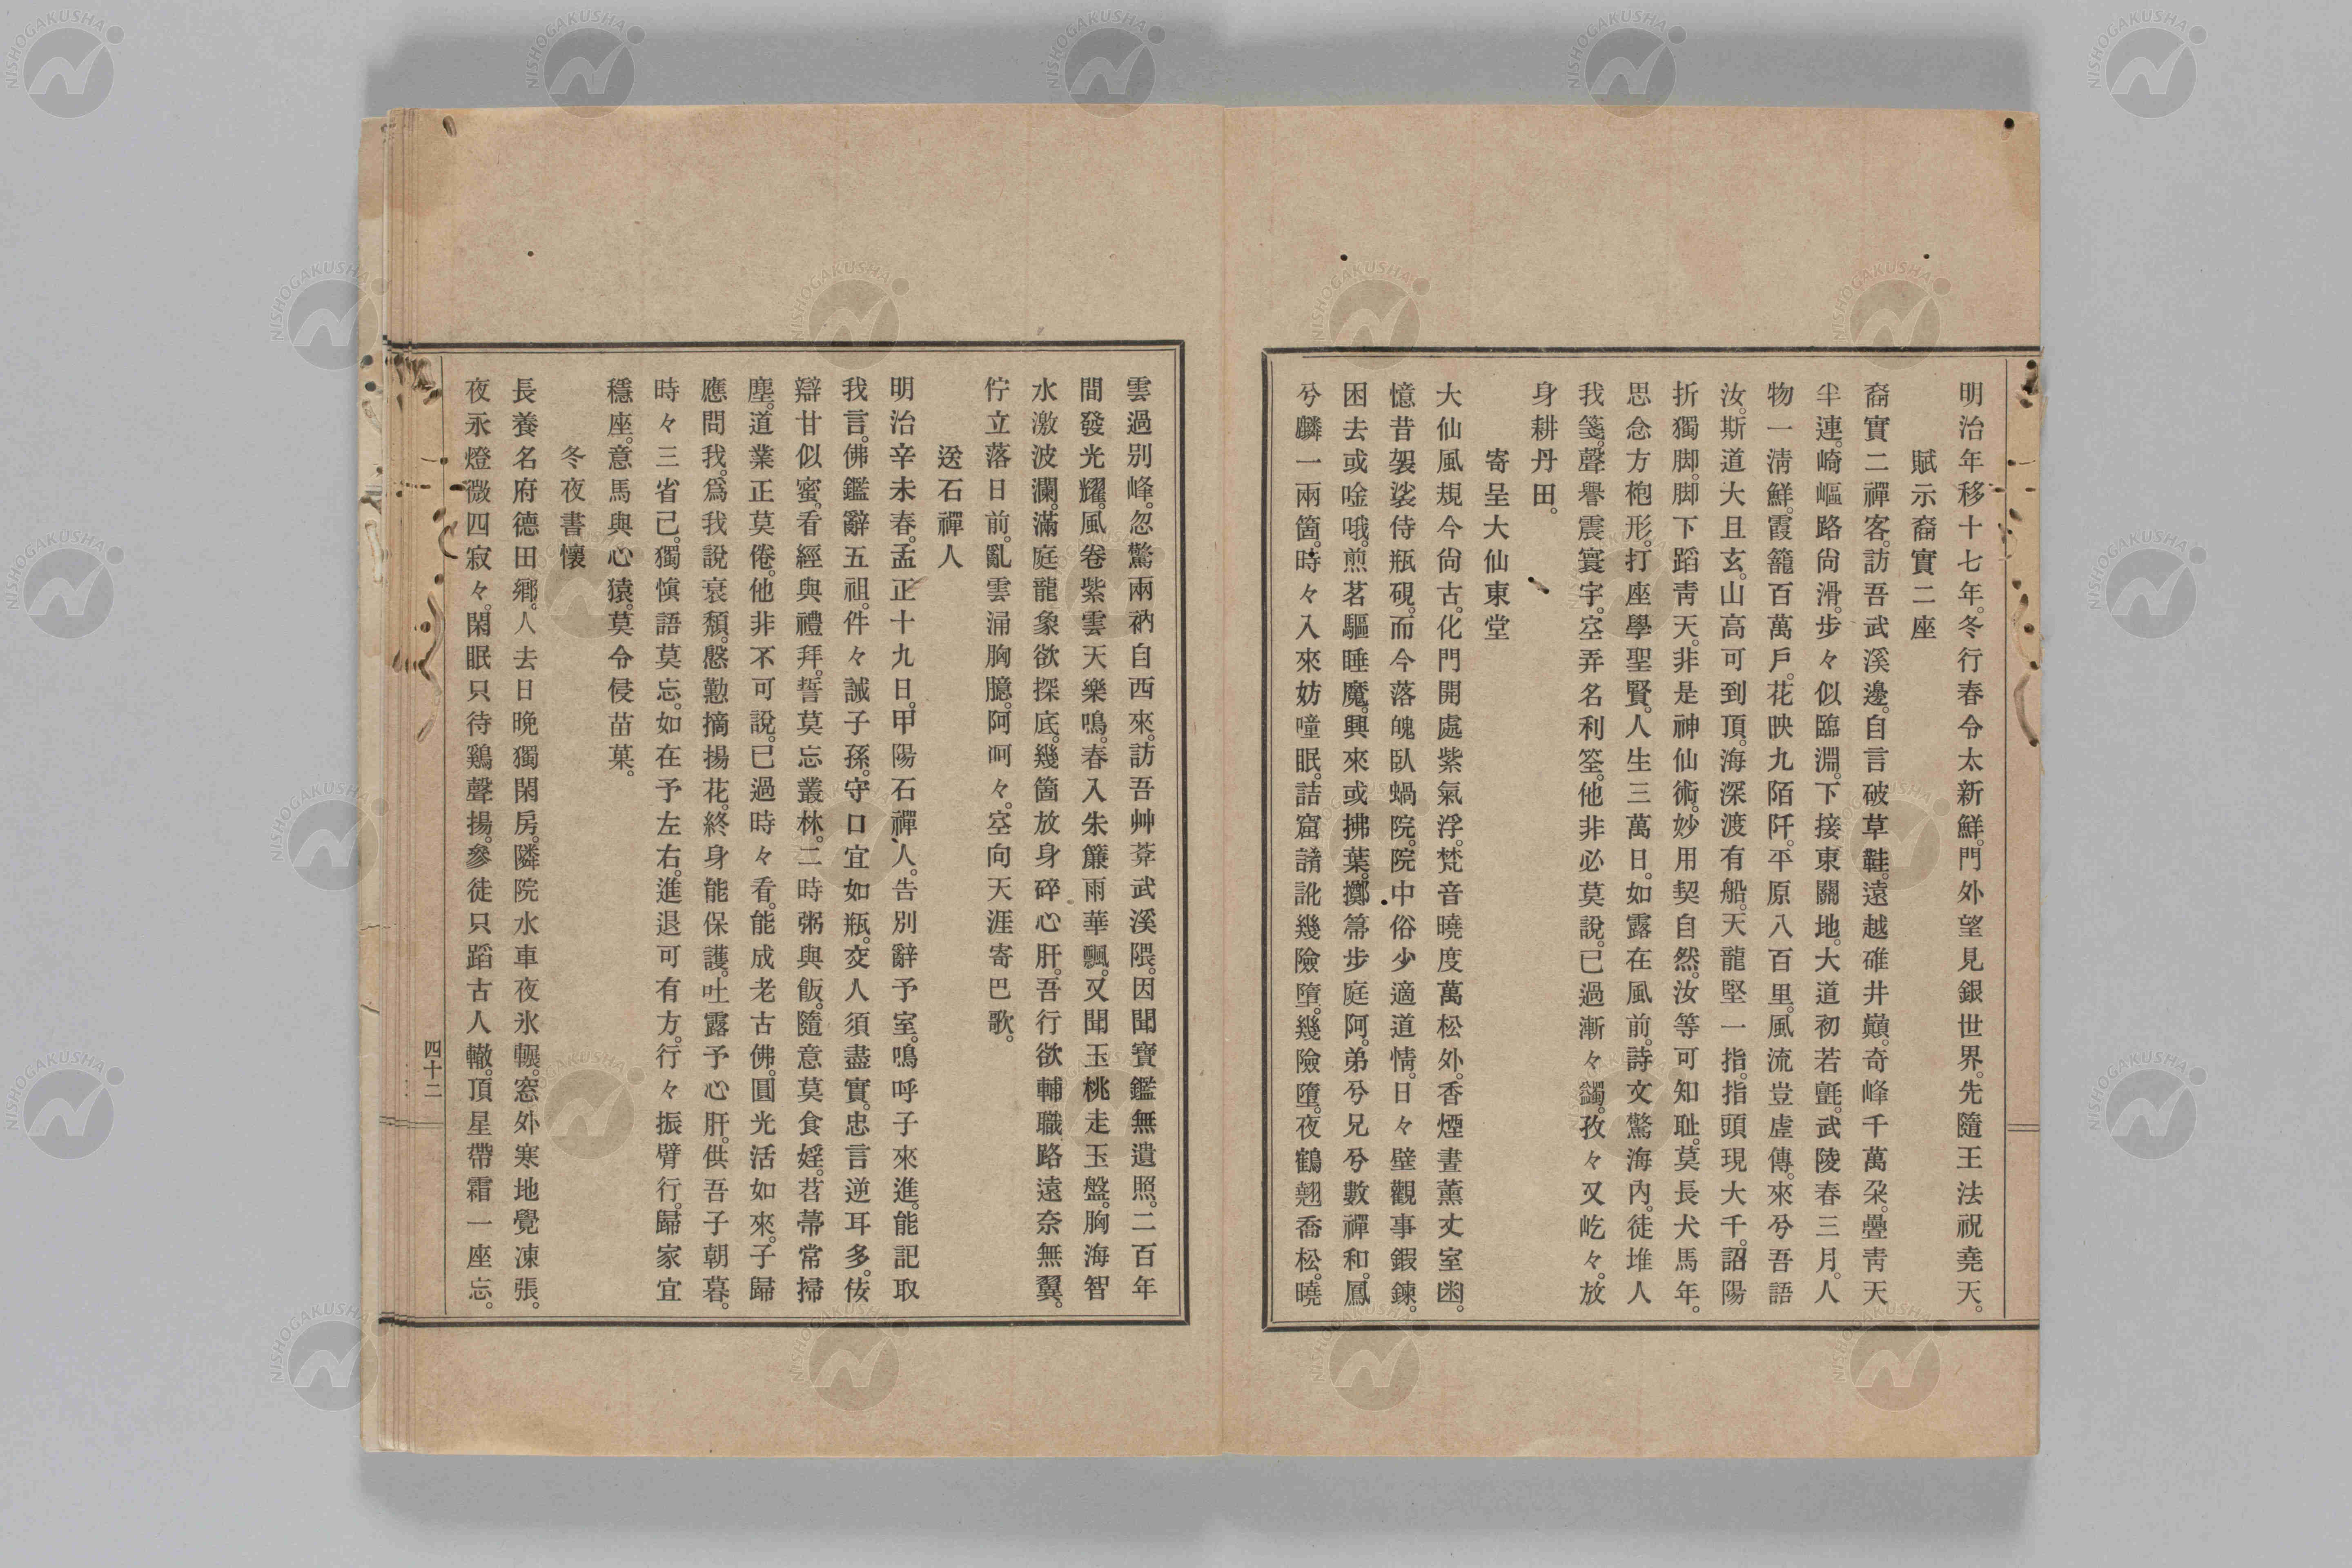 明治年移十七年。冬行春令太新鮮。門外望見銀世界。先隨王法祝堯天。
賦示裔實二座
裔實二禪客。訪吾武溪邊。自言破草鞋。遠越碓井巓。奇峰千萬朶。疊靑天
半連。崎嶇路尙滑。步々似臨淵。下接東關地。大道初若氈。武陵春三月。人
物一淸鮮。霞籠百萬戶。花映九陌阡。平原八百里。風流豈虛傳。來兮吾語
汝。斯道大且玄。山高可到頂。海深渡有船。天龍堅一指。指頭現大千。韶陽
折獨脚。脚下蹈靑天。非是神仙術。妙用契自然。汝等可知耻。莫長犬馬年。
思念方袍形。打座學聖賢。人生三萬日。如露在風前。詩文驚海內。徒堆人
我箋。聲譽震寰宇。空弄名利筌。他非必莫說。已過漸々蠲。孜々又屹々。放
身耕丹田。
寄呈大仙東堂
大仙風規今尙古。化門開處紫氣浮。梵音曉度萬松外。香煙晝薰丈室幽。
憶昔袈裟侍瓶硯。而今落魄臥蝸院。院中俗少適道情。日々壁觀事鍜鍊。
困去或唫哦。煎茗驅睡魔。興來或拂葉。擲箒步庭阿。弟兮兄兮數禪和。鳳
兮麟一兩箇。時々入來妨噇眠。詰窟謷訛幾險墮。幾險墮。夜鶴翹喬松。曉
雲過別峰。忽驚兩衲自西來。訪吾艸菴武溪隈。因聞寶鑑無遺照。二百年
間發光耀。風卷紫雲天樂鳴。春入朱簾雨華飄。又聞玉桃走玉盤。胸海智
水激波瀾。滿庭龍象欲探底。幾箇放身碎心肝。吾行欲輔職路遠奈無翼。
佇立落日前。亂雲涌胸臆。阿呵々。空向天涯寄巴歌。
送石禪人
明治辛未春。孟正十九日。甲陽石禪人。告別辭予室。鳴呼子來進。能記取
我言。佛鑑辭五祖。件々誡子孫。守口宜如瓶。交人須盡實。忠言逆耳多。侫
辯甘似蜜。看經與禮拜。誓莫忘叢林。二時粥與飯。隨意莫食婬。苕菷常掃
塵。道業正莫倦。他非不可說。已過時々看。能成老古佛。圓光活如來。子歸
應問我。爲我說衰頹。慇懃摘揚花。終身能保護。吐露予心肝。供吾子朝暮。
時々三省己。獨愼語莫忘。如在予左右。進退可有方。行々振臂行。歸家宜
穩座。意馬與心猿。莫令侵苗菓。
冬夜書懷
長養名府德田鄕。人去日晚獨閑房。隣院水車夜氷輾。窓外寒地覺凍張。
夜永燈微四寂々。閑眠只待鷄聲揚。參徒只蹈古人轍。頂星帶霜一座忘。
四十二